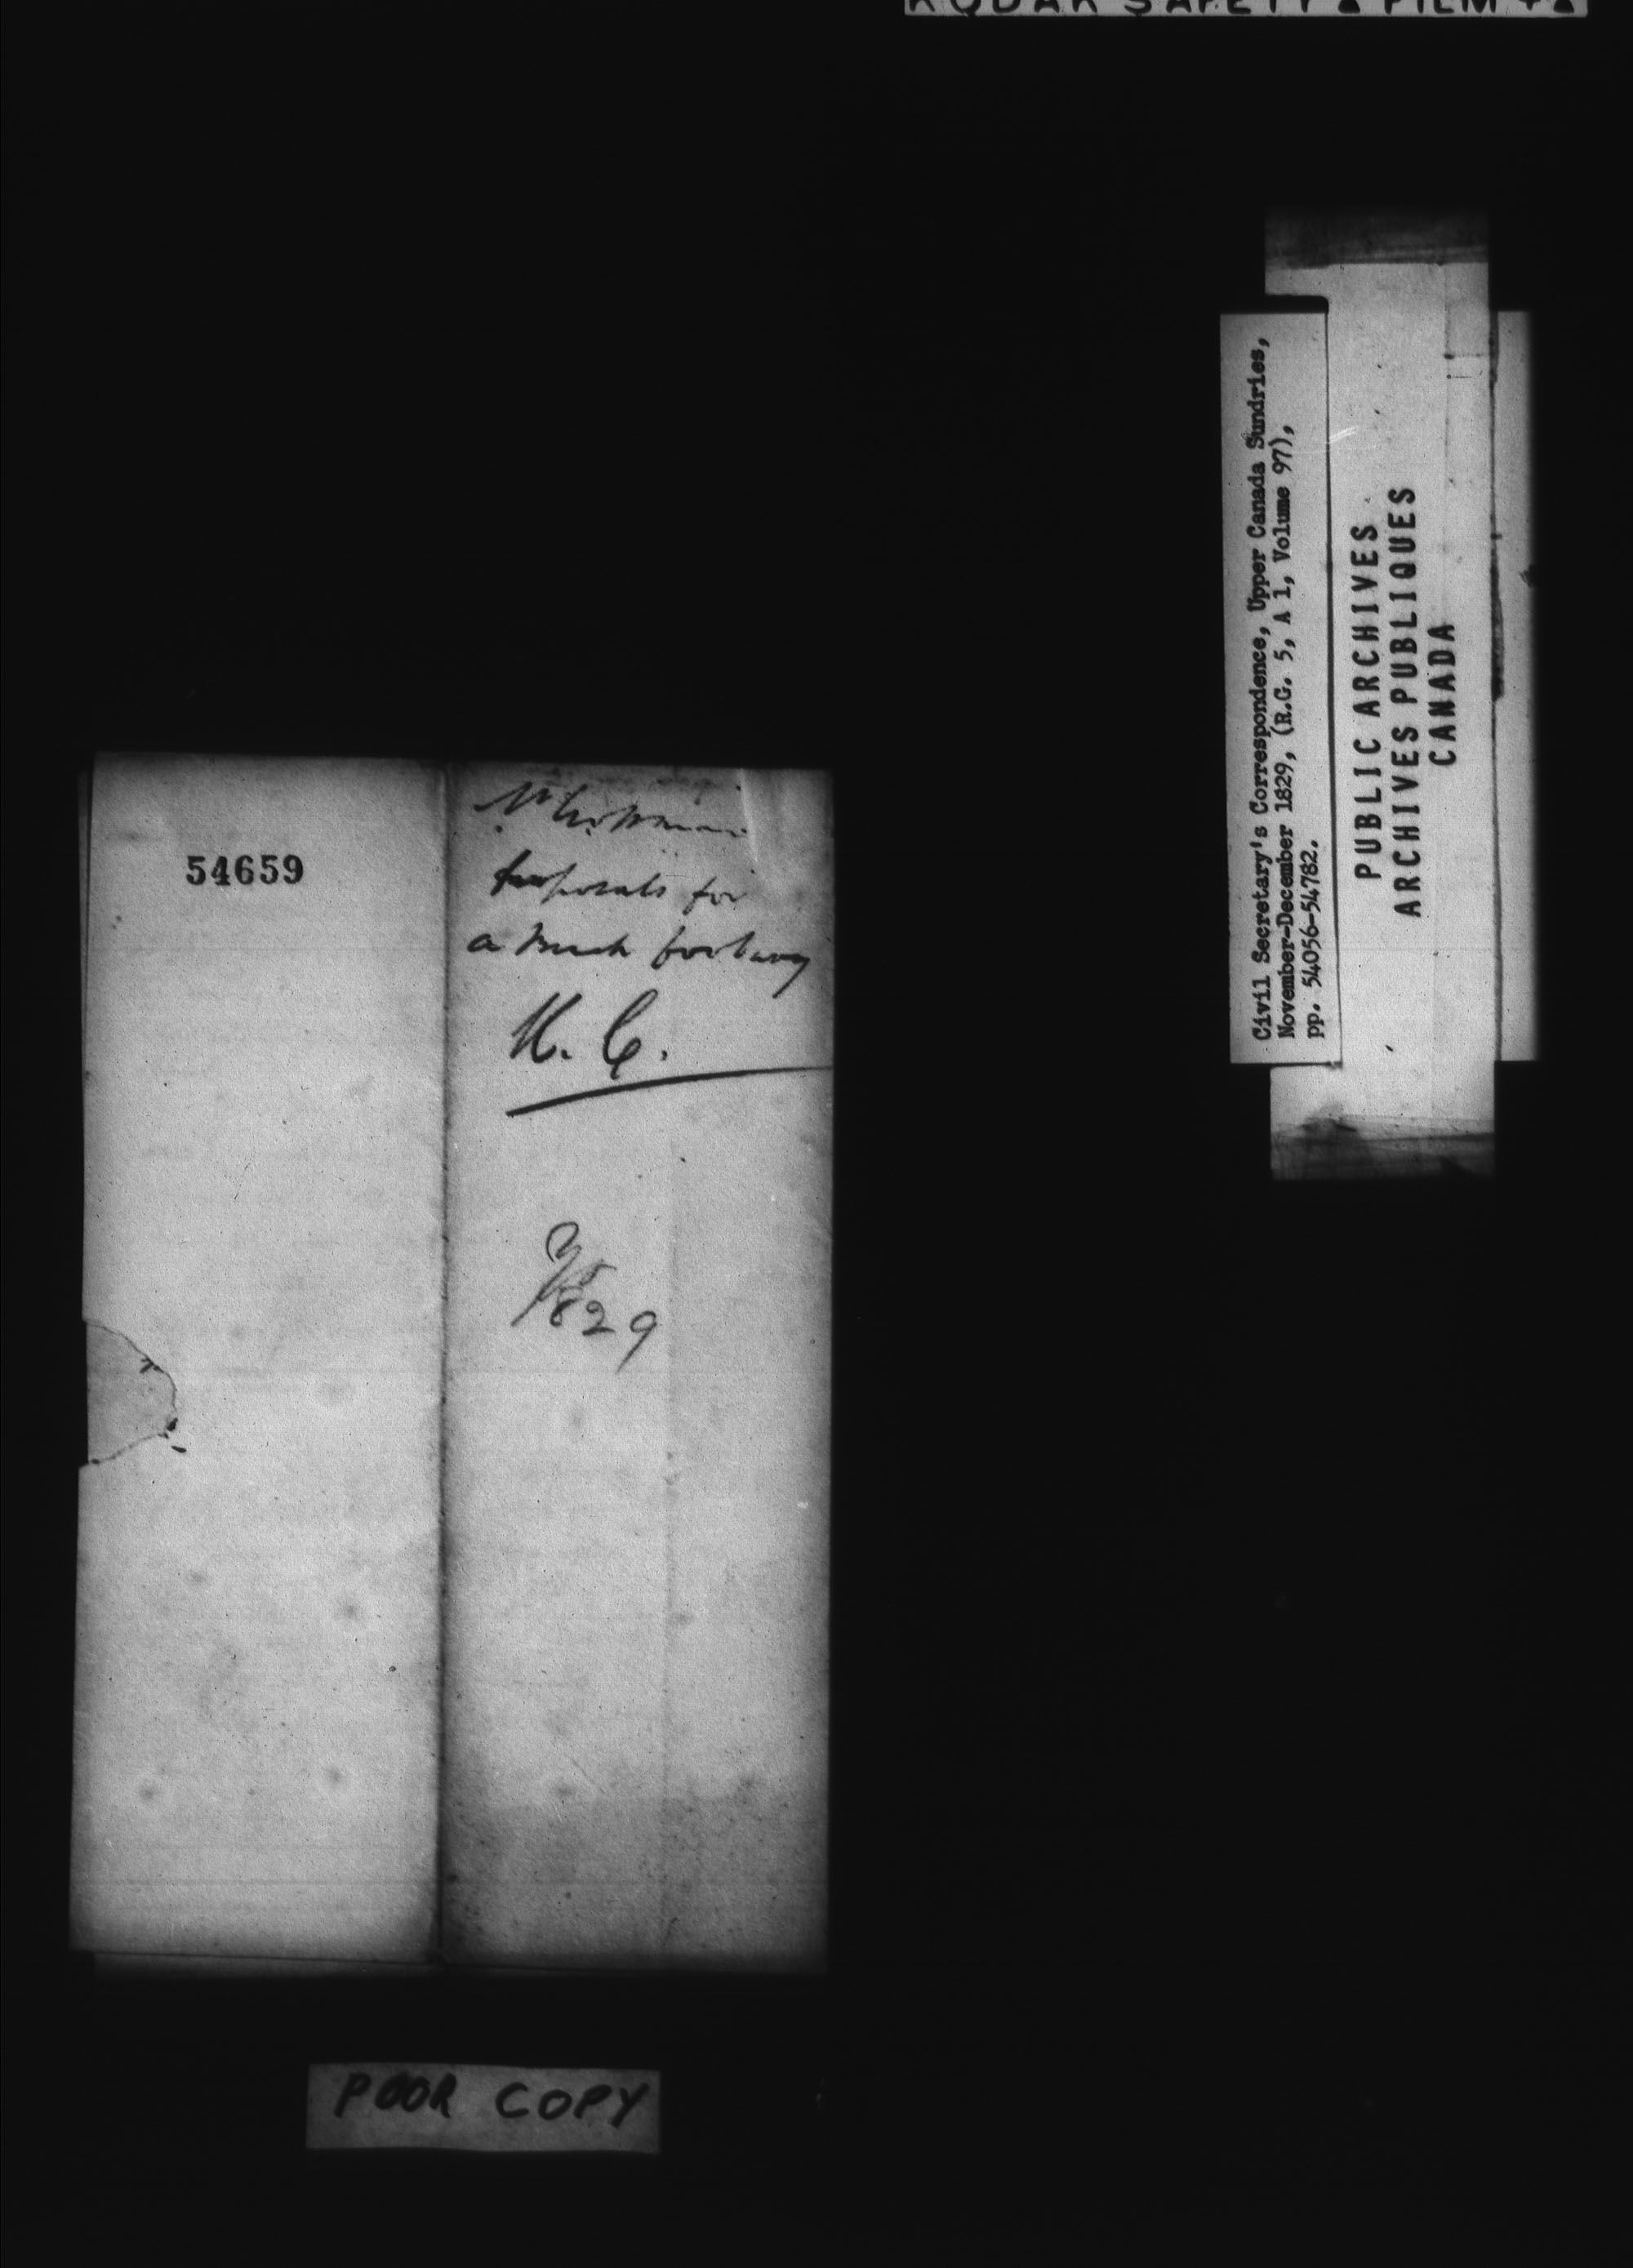 KODAK SAFETY FILM
54659
proposals for
a footway
K. C.
1829
Civil Secretary's Correspondence, Upper Canada Sundries,
November-December 1829, (R.G. 5, A 1, Volume 97),
pp. 54056-54782.
PUBLIC ARCHIVES
ARCHIVES PUBLIQUES
CANADA
POOR COPY